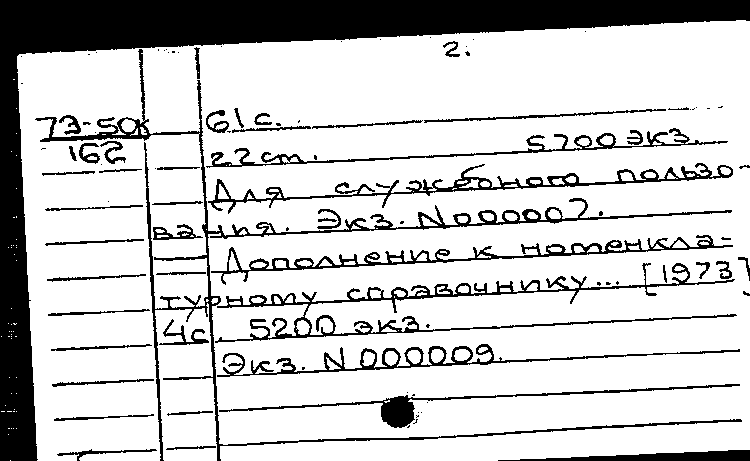 2.
73-50к 61с.
162 22 ст. 5700 экз.
Для служебного пользо-
вания. Экз. N000007.
Дополнение к номенкла-
турному справочнику... [1973]
4с. 5200 экз.
Экз. N 000009.